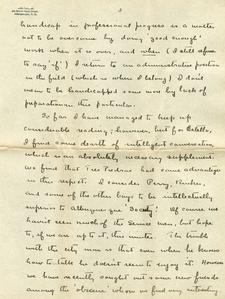 3
handicap in professional progress is a matter
not to be overcome by doing "good enough"
work when it is over, and when (I still refuse
to say "if") I return to an administrative position
in the field (which is where I belong) I don't
want to be handicapped some more by lack of
preparation in this particular.
So far I have managed to keep up
considerable reading; however, but for
I find some dearth of intelligent conversation
which is an absolutely necessary supplement.
We find that Tres Piedras had some advantages
in this respect. I consider Perry, Parker,
and some of the other boys to be intellectually
superior to Albuquerque "Society". Of course we
haven't seen much of the Service men, but hope
to, if we are up to it, this winter. The trouble
with the city man is that even when he knows
how to talk he doesn't seem to enjoy it. However
we have recently sought out some new friends
among the "obscure" whom we find very interesting